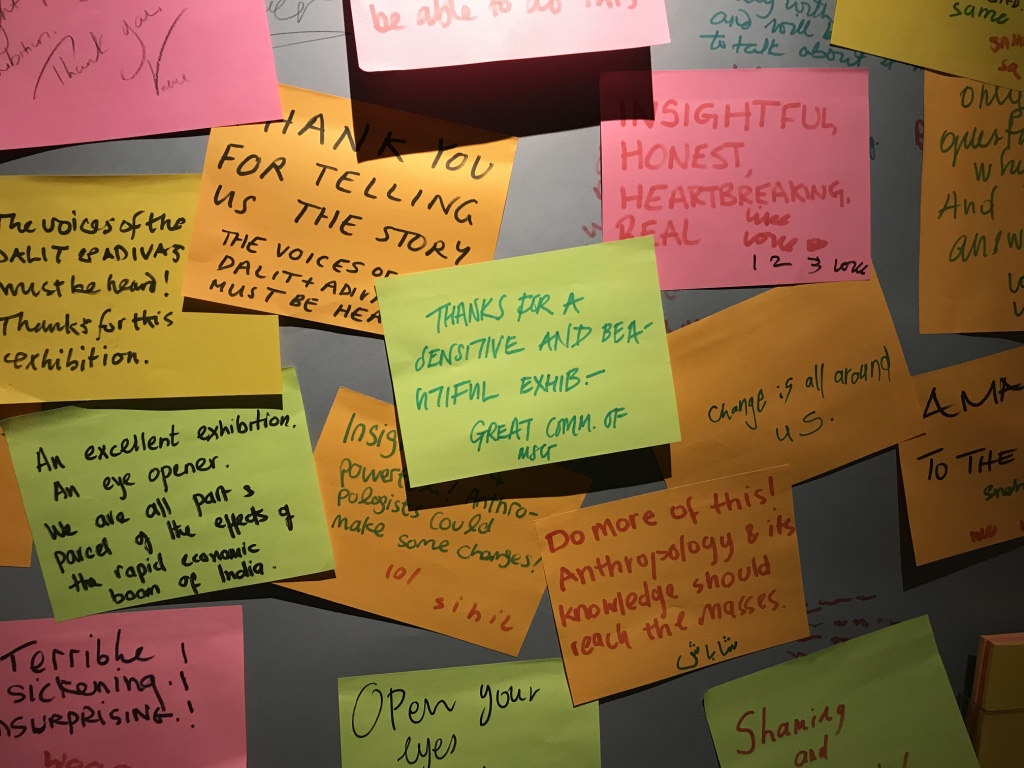 Thank you
be able to do this
and will
to talk about
same
The voices of the
DALIT & ADIVAS
must be heard!
Thanks for this
exhibition.
THANK YOU
FOR TELLING
US THE STORY
THE VOICES OF
DALIT + ADIVA
MUST BE HEA
INSIGHTFUL,
HONEST,
HEARTBREAKING.
REAL
like
love
1 2 3 love
only
And
THANKS FOR A
SENSITIVE AND BEA-
UTIFUL EXHIB.-
GREAT COMM. OF
Change is all around
us.
AMA
TO THE
me
An excellent exhibition.
An eye opener.
We are all part &
parcel of the effects of
the rapid economic
boom of India.
Insig
power
Anthro-
pologists could
make some changes!
10/
sihil
Do more of this!
Anthropology & its
knowledge should
reach the masses.
شاباش
Terrible !
sickening !
NSURPRISING.!
Open your
eyes
Shaming
and